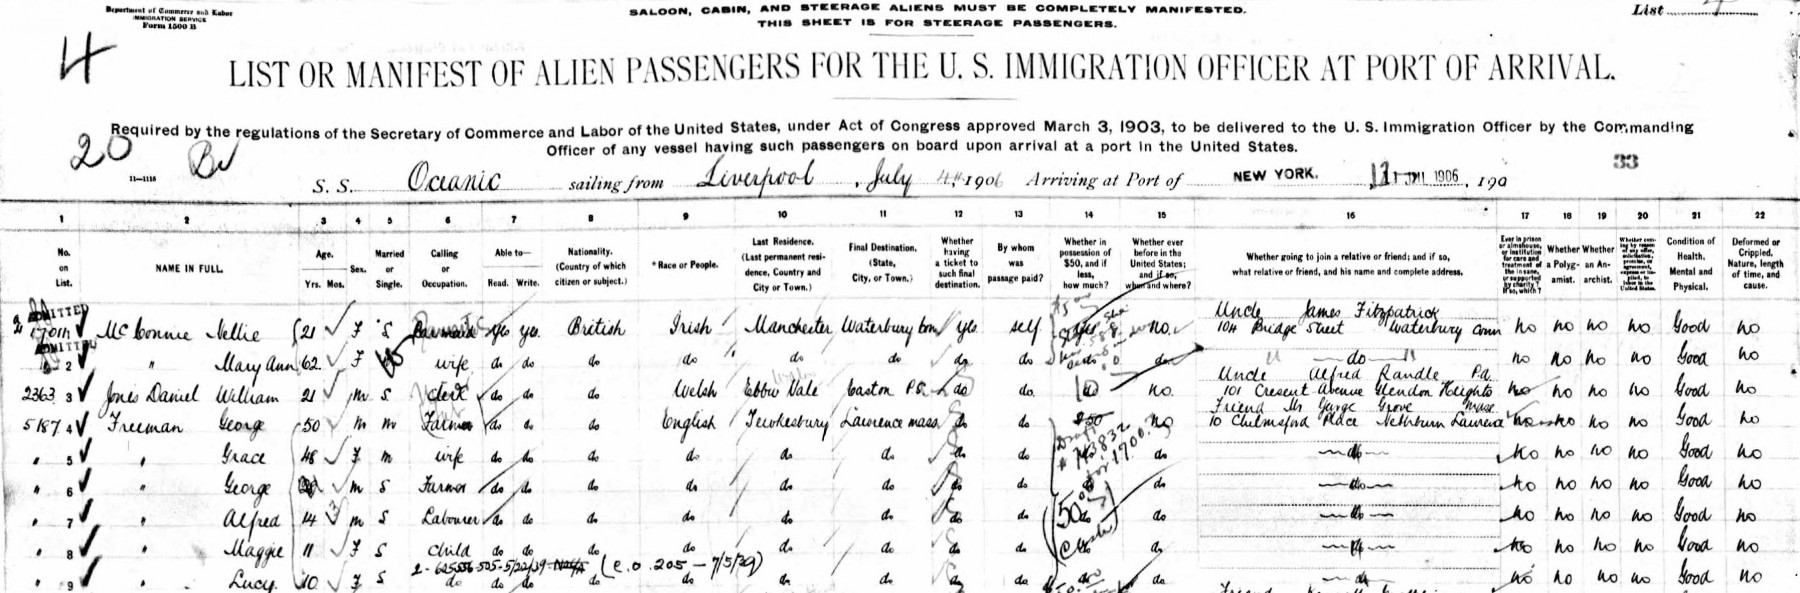 Department of Commerce and Labor
IMMIGRATION SERVICE
Form 1500 B
SALOON, CABIN, AND STEERAGE ALIENS MUST BE COMPLETELY MANIFESTED.
THIS SHEET IS FOR STEERAGE PASSENGERS.
List
4
LIST OR MANIFEST OF ALIEN PASSENGERS FOR THE U. S. IMMIGRATION OFFICER AT PORT OF ARRIVAL.
Required by the regulations of the Secretary of Commerce and Labor of the United States, under Act of Congress approved March 3, 1903, to be delivered to the U. S. Immigration Officer by the Commanding
Officer of any vessel having such passengers on board upon arrival at a port in the United States.
20
11—1115
33
S. S. Oceanic sailing from Liverpool, July 4th, 1906 Arriving at Port of NEW YORK. 1906, 190
1 2 3 4 5 6 7 8 9 10 11 12 13 14 15 16 17 18 19 20 21 22
No. on List.
NAME IN FULL.
Age. Yrs. Mos.
Sex.
Married or Single.
Calling or Occupation.
Able to— Read. Write.
Nationality. (Country of which citizen or subject.)
*Race or People.
Last Residence. (Last permanent residence, Country and City or Town.)
Final Destination. (State, City, or Town.)
Whether having a ticket to such final destination.
By whom was passage paid?
Whether in possession of $50, and if less, how much?
Whether ever before in the United States; and if so, when and where?
Whether going to join a relative or friend; and if so, what relative or friend, and his name and complete address.
Ever in prison or almshouse, or institution for care and treatment of the insane, or supported by charity? If so, which?
Whether a Polygamist.
Whether an Anarchist.
Condition of Health, Mental and Physical.
Deformed or Crippled. Nature, length of time, and cause.
ADMITTED
McConnie Nellie 21 F S yes yes British Irish Manchester Waterbury Conn yes self no Uncle James Fitzpatrick 104 Bridge Street Waterbury Conn no no no no Good no
ADMITTED
2 " Mary Ann 62 F wife do do do do do do do do do do no no no no Good no
2363 3 Jones Daniel William 21 m S Clerk do do do Welsh Ebbw Vale Easton Pa do do no Uncle Alfred Randle Pa 101 Cresent Avenue Glendon Heights no no no no Good no
5187 4 Freeman George 50 m m Farmer do do do English Tewkesbury Lawrence mass do do $50 no Friend Mr George Grove Mass 10 Chelmsford Place Lawrence no no no Good no
" 5 " Grace 48 F m wife do do do do do do do do do do no no no no Good no
" 6 " George m S Farmer do do do do do do do do do do no no no no Good no
" 7 " Alfred 14 m S Labourer do do do do do do do do 50 do do no no no no Good no
" 8 " Maggie 11 F S child do do do do do do do do do do no no no no Good no
2-625556-505-5/22/39 (e.o. 205 — 7/5/39)
" 9 " Lucy 10 F S do do do do do do do do do do do no no no no Good no